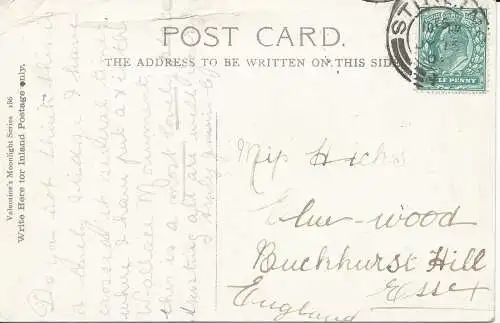 POST CARD.
THE ADDRESS TO BE WRITTEN ON THIS SID
STIRL
LF PENNY
Valentine's Moonlight Series 186
Write Here for Inland Postage only.
Do you not think this is
a lovely bridge I have
crossed it several times
where I have put a x is the
Wallace Monument
this is a most lovely
trusting all are well
Miss Hicks
Elm-wood
Buckhurst Hill
Essex
England